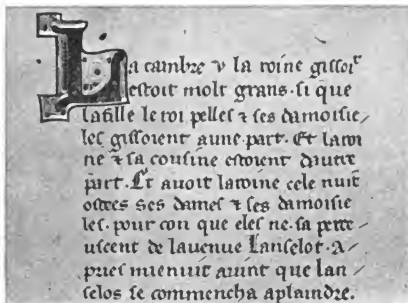 La cambre v la roine gissoit
estoit molt grans. si que
la fille le roi pelles ⁊ ses damoisie/
les gissoient a une part. Et la roi
ne ⁊ sa cousine estoient dautre
part. Et auoit la roine cele nuit
ostees ses dames ⁊ ses damoisie
les. pour con que eles ne sa perce/
uscent de lauenue Lanselot. A/
pries mienuit auint que lan/
selos se commencha a plaindre.